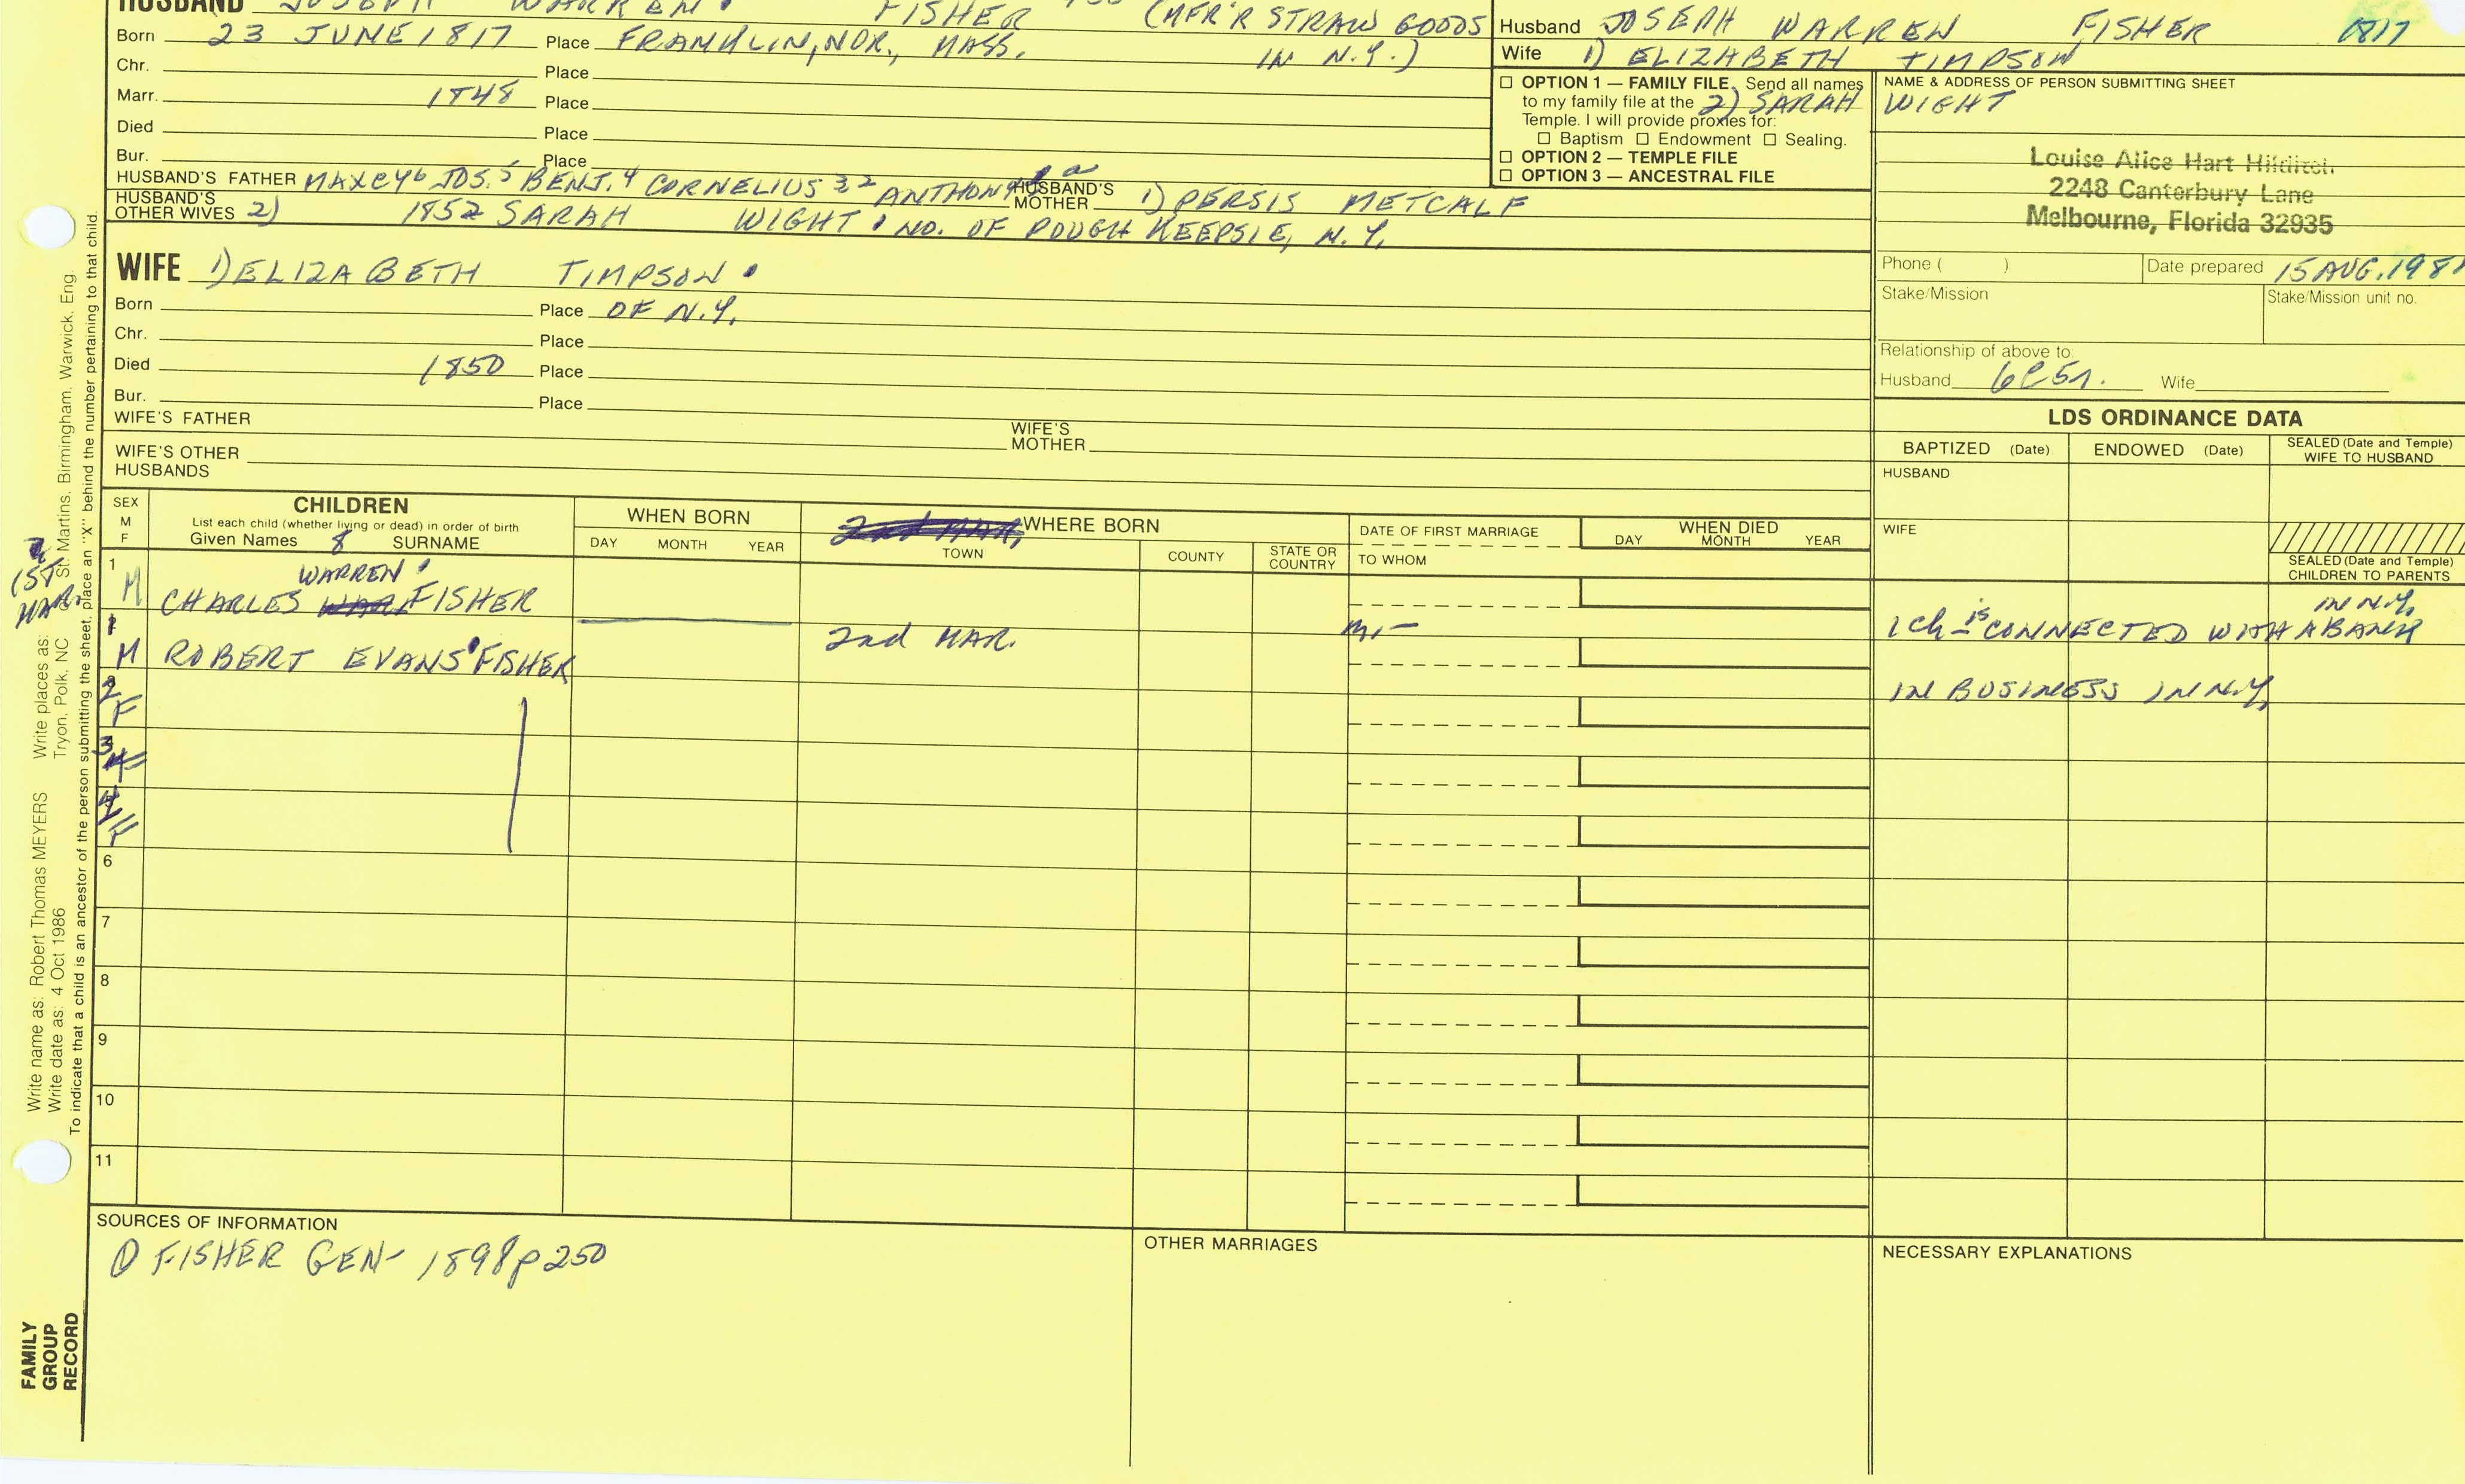 HUSBAND JOSEPH WARREN FISHER (MFR'R STRAW GOODS
IN N.Y.)
Born 23 JUNE 1817 Place FRANKLIN, NOR., MASS.
Chr. Place
Marr. 1848 Place
Died Place
Bur. Place
HUSBAND'S FATHER MAXCY6 JOS.5 BENJ.4 CORNELIUS 3 2 ANTHONY HUSBAND'S MOTHER 1) PERSIS METCALF
HUSBAND'S OTHER WIVES 2) 1852 SARAH WIGHT NO. OF POUGHKEEPSIE, N.Y.
WIFE 1) ELIZABETH TIMPSON
Born Place OF N.Y.
Chr. Place
Died 1850 Place
Bur. Place
WIFE'S FATHER WIFE'S MOTHER
WIFE'S OTHER HUSBANDS
Husband JOSEPH WARREN FISHER 1817
Wife 1) ELIZABETH TIMPSON
2) SARAH WIGHT
☐ OPTION 1 — FAMILY FILE. Send all names
to my family file at the
Temple. I will provide proxies for:
☐ Baptism ☐ Endowment ☐ Sealing.
☐ OPTION 2 — TEMPLE FILE
☐ OPTION 3 — ANCESTRAL FILE
NAME & ADDRESS OF PERSON SUBMITTING SHEET
Louise Alice Hart Hilditch
2248 Canterbury Lane
Melbourne, Florida 32935
Phone ( ) Date prepared 15 AUG. 198
Stake/Mission Stake/Mission unit no.
Relationship of above to:
Husband 6C5R. Wife
LDS ORDINANCE DATA
BAPTIZED (Date) ENDOWED (Date) SEALED (Date and Temple) WIFE TO HUSBAND
HUSBAND
WIFE
SEALED (Date and Temple) CHILDREN TO PARENTS
SEX M F
CHILDREN
List each child (whether living or dead) in order of birth
Given Names 8 SURNAME
WHEN BORN
DAY MONTH YEAR
2nd MAR. WHERE BORN
TOWN COUNTY STATE OR COUNTRY
DATE OF FIRST MARRIAGE
TO WHOM
WHEN DIED
DAY MONTH YEAR
1ST MAR.
1 M CHARLES WARREN FISHER
IN N.Y.
1 Ch - is CONNECTED WITH A BANK
1 M ROBERT EVANS FISHER 2nd MAR. m. —
IN BUSINESS IN N.Y.
2 F
3 F
4 F
6
7
8
9
10
11
SOURCES OF INFORMATION
① FISHER GEN- 1898 p 250
OTHER MARRIAGES
NECESSARY EXPLANATIONS
Write name as: Robert Thomas MEYERS Write places as: St. Martins, Birmingham, Warwick, Eng
Write date as: 4 Oct 1986 Tryon, Polk, NC
To indicate that a child is an ancestor of the person submitting the sheet, place an "X" behind the number pertaining to that child.
FAMILY
GROUP
RECORD